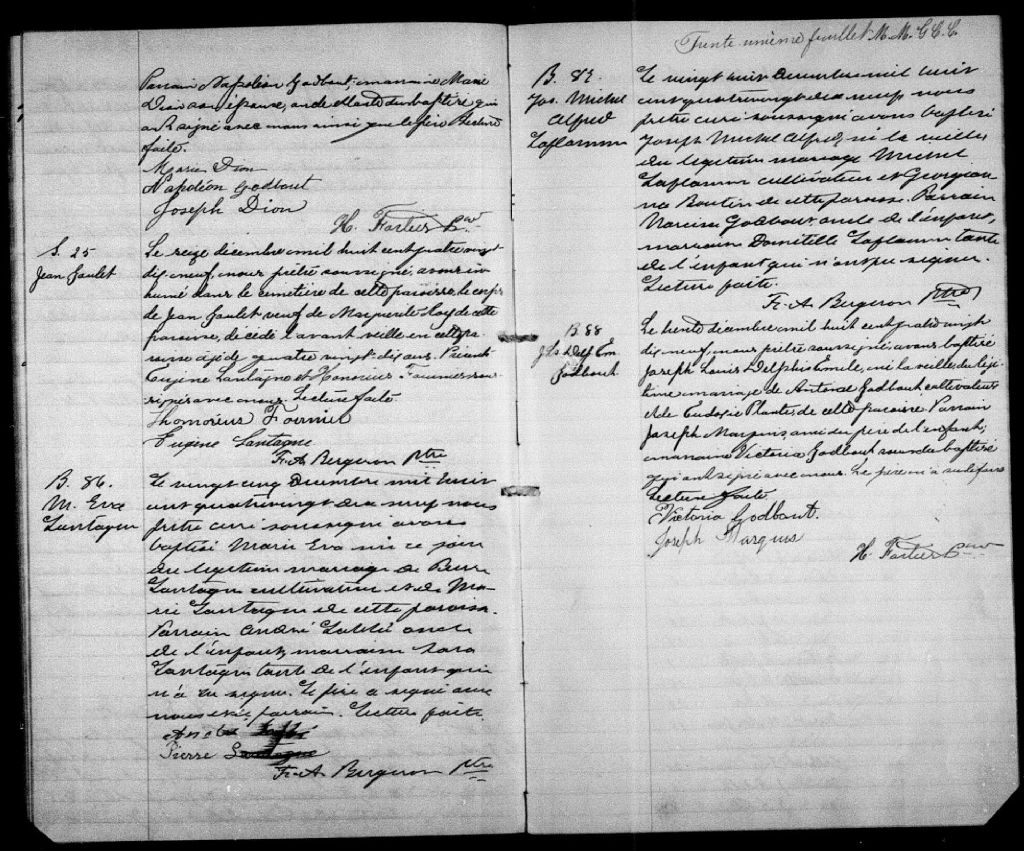 Parrain Napoléon Godbout, marraine Marie
Dion son épouse, oncle et tante du baptisé qui
ont signé avec nous ainsi que le père Lecture
faite.
Marie Dion
Napoléon Godbout
Joseph Dion
H. Fortier Curé
S. 25
Jean Goulet
Le seize décembre mil huit cent quatre vingt
dix neuf, nous prêtre soussigné, avons in
humé dans le cimetière de cette paroisse, le corps
de Jean Goulet veuf de Marguerite Roy de cette
paroisse, décédé l'avant veille en cette pa
roisse agé de quatre vingt dix ans. Présents
Eugène Lantagne et Honorius Fournier sous
signés avec nous. Lecture faite.
Thomorius Fournier
Eugène Lantagne
Fr. A Bergeron Ptre
B. 86.
M. Eva
Lantagne
Le vingt cinq Decembre mil huit
cent quatrevingt dix neuf nous
prêtre curé soussigné avons
baptisé Marie Eva née ce jour
du legitime mariage de Pierre
Lantagne cultivateur et de Ma-
rie Lantagne de cette paroisse.
Parrain André Labbé oncle
de l'enfant, marraine Sara
Lantagne tante de l'enfant qui
n'a su signer. Le père a signé avec
nous et le parrain. Lecture faite.
André Labbé
Pierre Lantagne
Fr. A Bergeron Ptre
Trente unième feuillet M. M. G C. C
B. 87
Jos. Michel
Alfred
Laflamme
Le vingt huit Decembre mil huit
cent quatrevingt dix neuf nous
prêtre curé soussigné avons baptisé
Joseph Michel Alfred, né la veille
du legitime mariage Michel
Laflamme cultivateur et Georgian
na Boutin de cette paroisse. Parrain
Narcisse Godbout oncle de l'enfant,
marraine Domitille Laflamme tante
de l'enfant qui n'ont pu signer.
Lecture faite.
Fr. A Bergeron Ptre
B. 88
J. Ls. Delf Em.
Godbout
Le trente décembre mil huit cent quatre vingt
dix neuf, nous prêtre soussigné, avons baptisé
Joseph Louis Delphis Emile, né la veille, du légi
time mariage de Antoine Godbout, cultivateur
et de Eudoxie Plante, de cette paroisse. Parrain
Joseph Marquis, ami du père de l'enfant;
marraine Victoria Godbout, soeur du baptisé
qui ont signé avec nous. Le père n'a su le faire
Lecture faite
Victoria Godbout.
Joseph Marquis
H. Fortier Curé